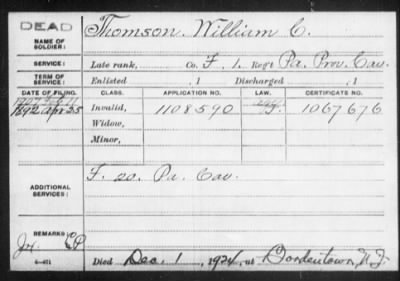 DEAD
NAME OF SOLDIER: Thomson, William C.
SERVICE: Late rank, Co. F, 1. Reg't Pa. Prov. Cav.
TERM OF SERVICE: Enlisted , 1 Discharged , 1
DATE OF FILING. CLASS. APPLICATION NO. LAW. CERTIFICATE NO.
1892 Apr 25 Invalid, 1108590 1067676
Widow,
Minor,
ADDITIONAL SERVICES: F. 20. Pa. Cav.
REMARKS:
Died Dec. 1, 1924, at Bordentown, N.J.